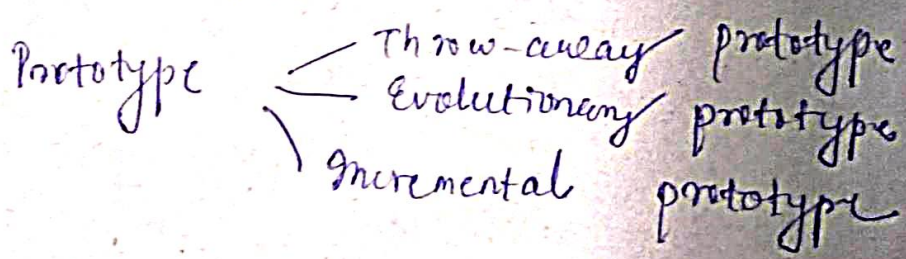 Prototype
Throw-away prototype
Evolutionary prototype
Incremental prototype